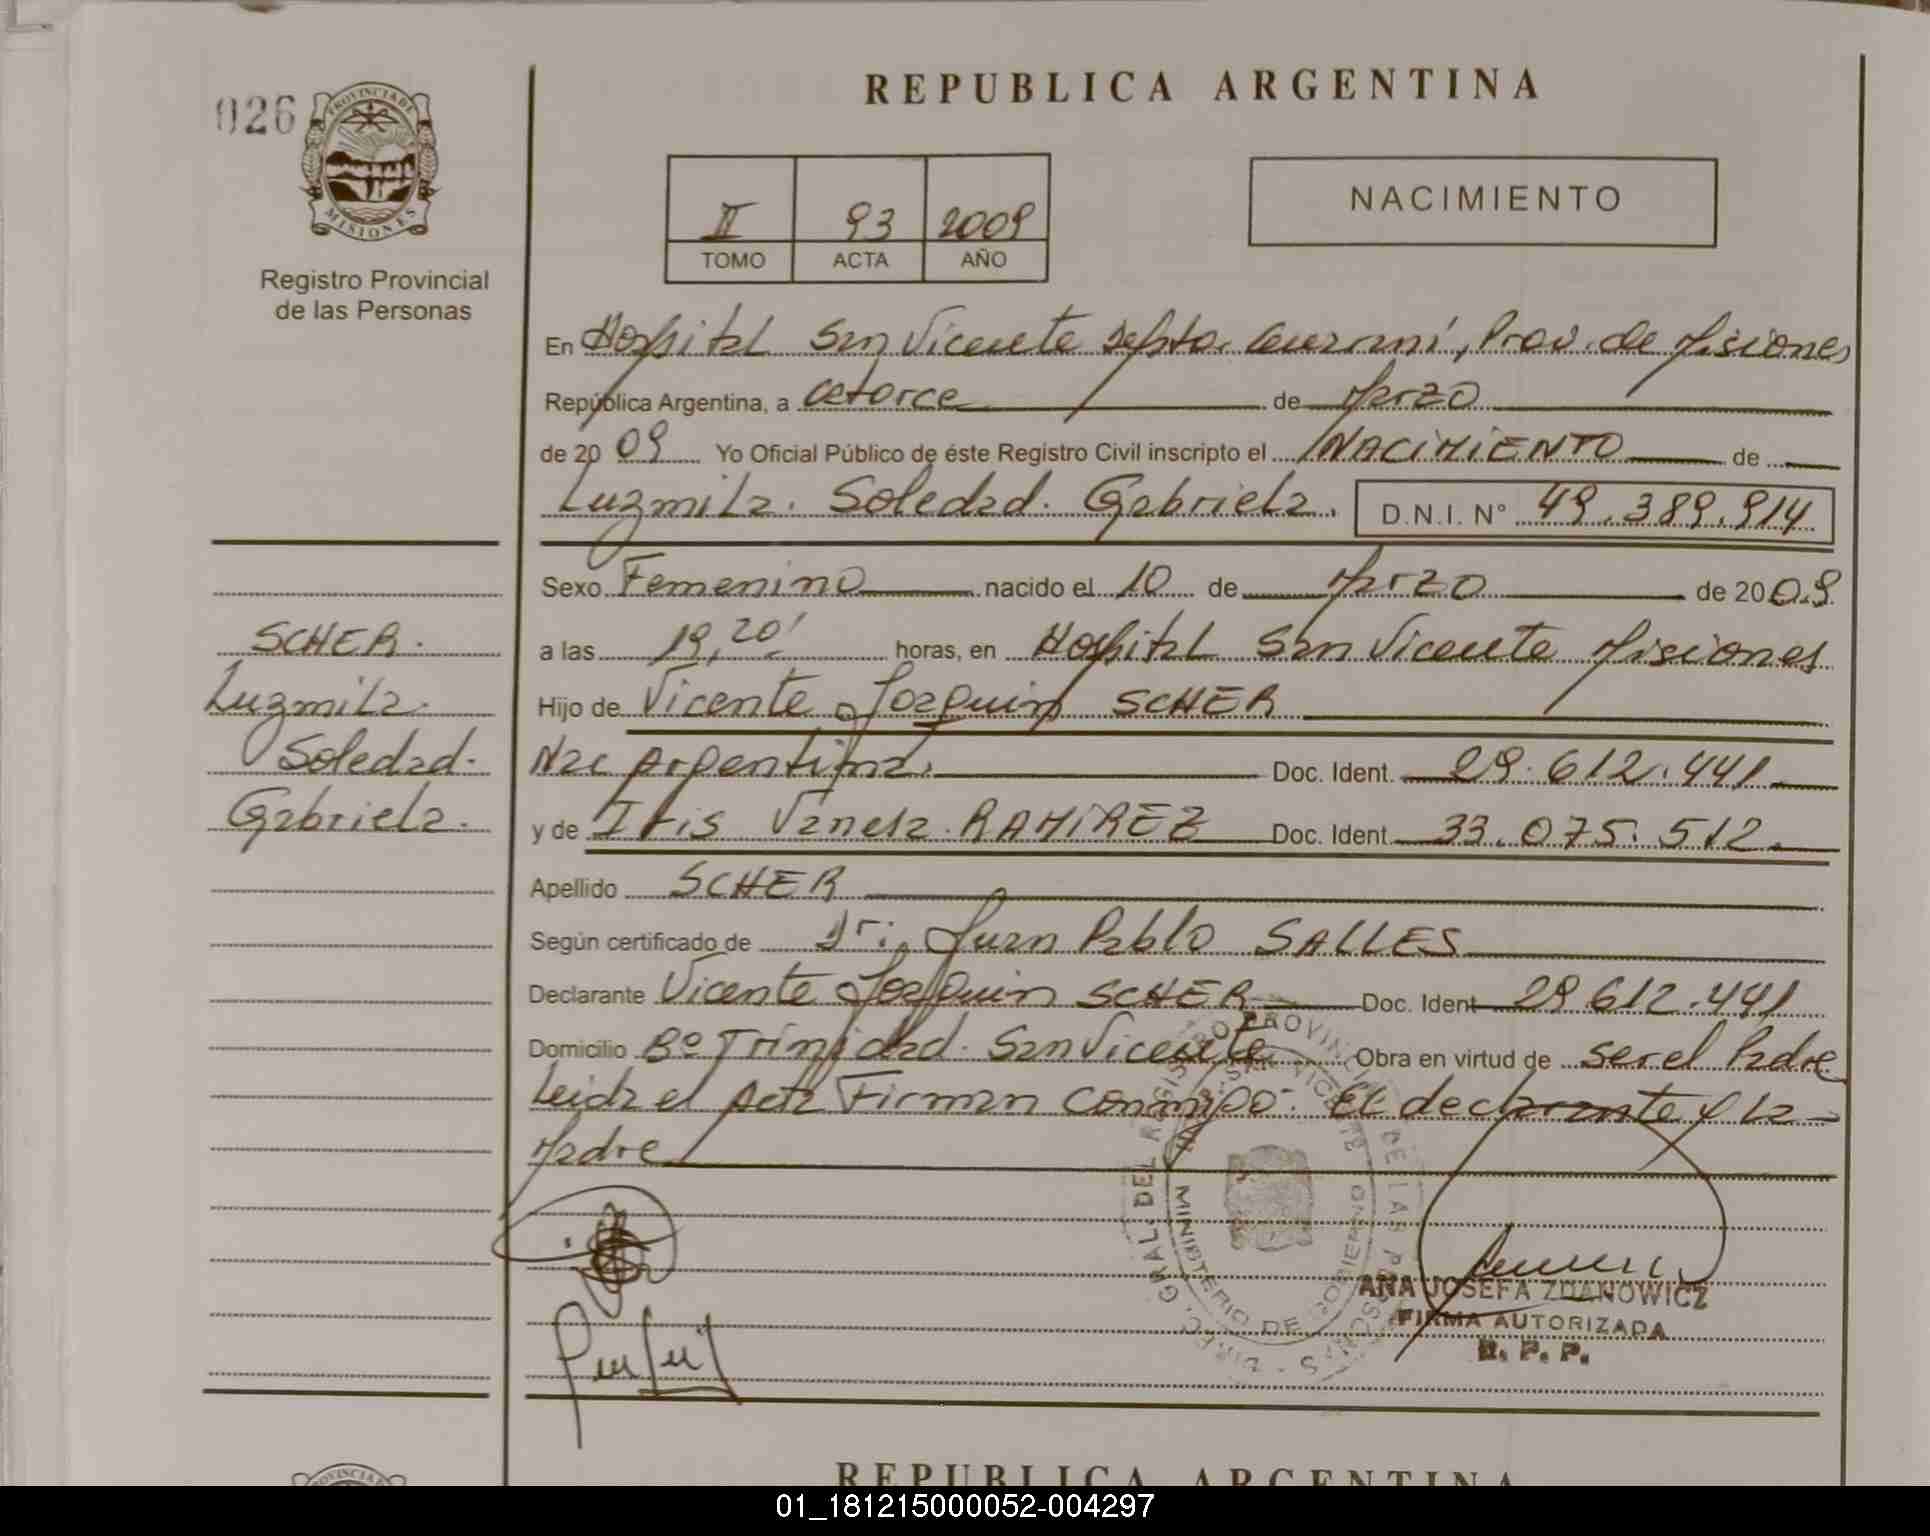 026
PROVINCIA DE
MISIONES
Registro Provincial
de las Personas
SCHER.
Luzmila.
Soledad.
Gabriela.
REPUBLICA ARGENTINA
II 93 2009
TOMO ACTA AÑO
NACIMIENTO
En Hospital San Vicente Depto. Guaraní, Prov. de Misiones
República Argentina, a catorce de Marzo
de 2009 Yo Oficial Público de éste Registro Civil inscripto el NACIMIENTO de
Luzmila. Soledad. Gabriela. D.N.I. N° 49.389.914
Sexo Femenino nacido el 10 de Marzo de 2009
a las 19,20' horas, en Hospital San Vicente Misiones
Hijo de Vicente Joaquin SCHER
Nac Argentina. Doc. Ident. 29.612.441
y de Iris Vanesa RAMIREZ Doc. Ident. 33.075.512.
Apellido SCHER
Según certificado de Dr. Juan Pablo SALLES
Declarante Vicente Joaquin SCHER Doc. Ident 29.612.441
Domicilio Bº Trinidad. San Vicente Obra en virtud de ser el Padre
Leida el Acta Firman conmigo. El declarante y la
Madre
ANA JOSEFA ZDANOWICZ
FIRMA AUTORIZADA
R. P. P.
PROVINCIA
REPUBLICA ARGENTINA
01_181215000052-004297